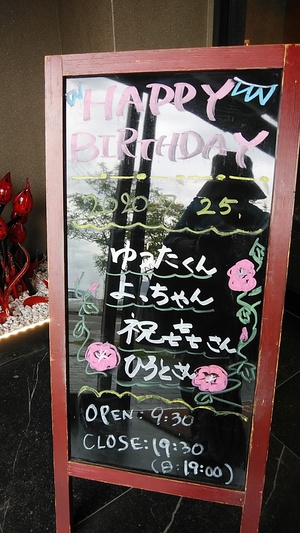 HAPPY
BIRTHDAY
2020. 25.
ゆうたくん
よっちゃん
祝 㐂 さん
ひろとさん
OPEN: 9:30
CLOSE: 19:30
(日: 19:00)